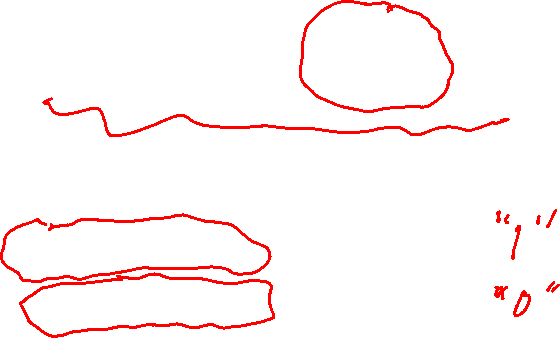 "1"
"0"